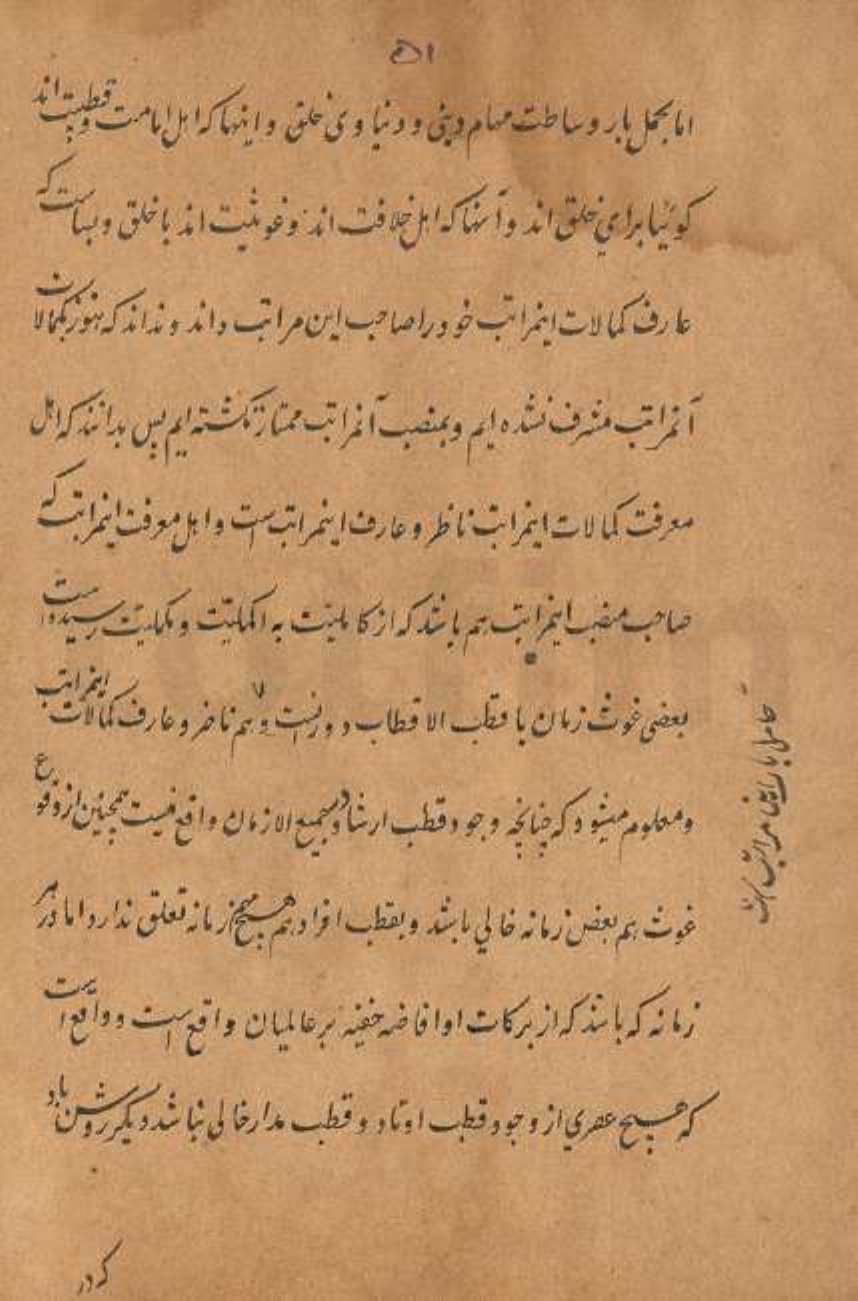 ۵۱
اما بحمل بار وساطت مهام دینی و دنیاوی خلق و اینها که اهل امامت و قطبیت اند
کوئیا برای خلق اند و آنها که اهل خلافت اند و غوثیت اند با خلق و بساست که
عارف کمالات اینمراتب خود را صاحب این مراتب داند و نداند که هنوز بکمالات
آنمراتب مشرف نشده ایم و بمنصب آنمراتب ممتاز نکشته ایم پس بدانند که اهل
معرفت کمالات اینمراتب ناظر و عارف اینمراتب است و اهل معرفت اینمراتب که
صاحب منصب اینمراتب هم باشد که از کاملیت به اکملیت و مکملیت رسیده است
بعضی غوث زمان با قطب الاقطاب دورنیست و هم ناظر و عارف کمالات اینمراتب
و معلوم میشود که چنانچه وجود قطب ارشاد بجمیع الازمان واقع نیست همچنین از وقوع
غوث هم بعض زمانه خالی باشد و بقطب افراد هم هیچ زمانه تعلق ندارد اما در هر
زمانه که باشد که از برکات او افاضه خفیه بر عالمیان واقع است و واقع است
که هیچ عصری از وجود قطب اوتاد و قطب مدار خالی نباشد دیکر روشن باد
حامل بار مراتب است
که در